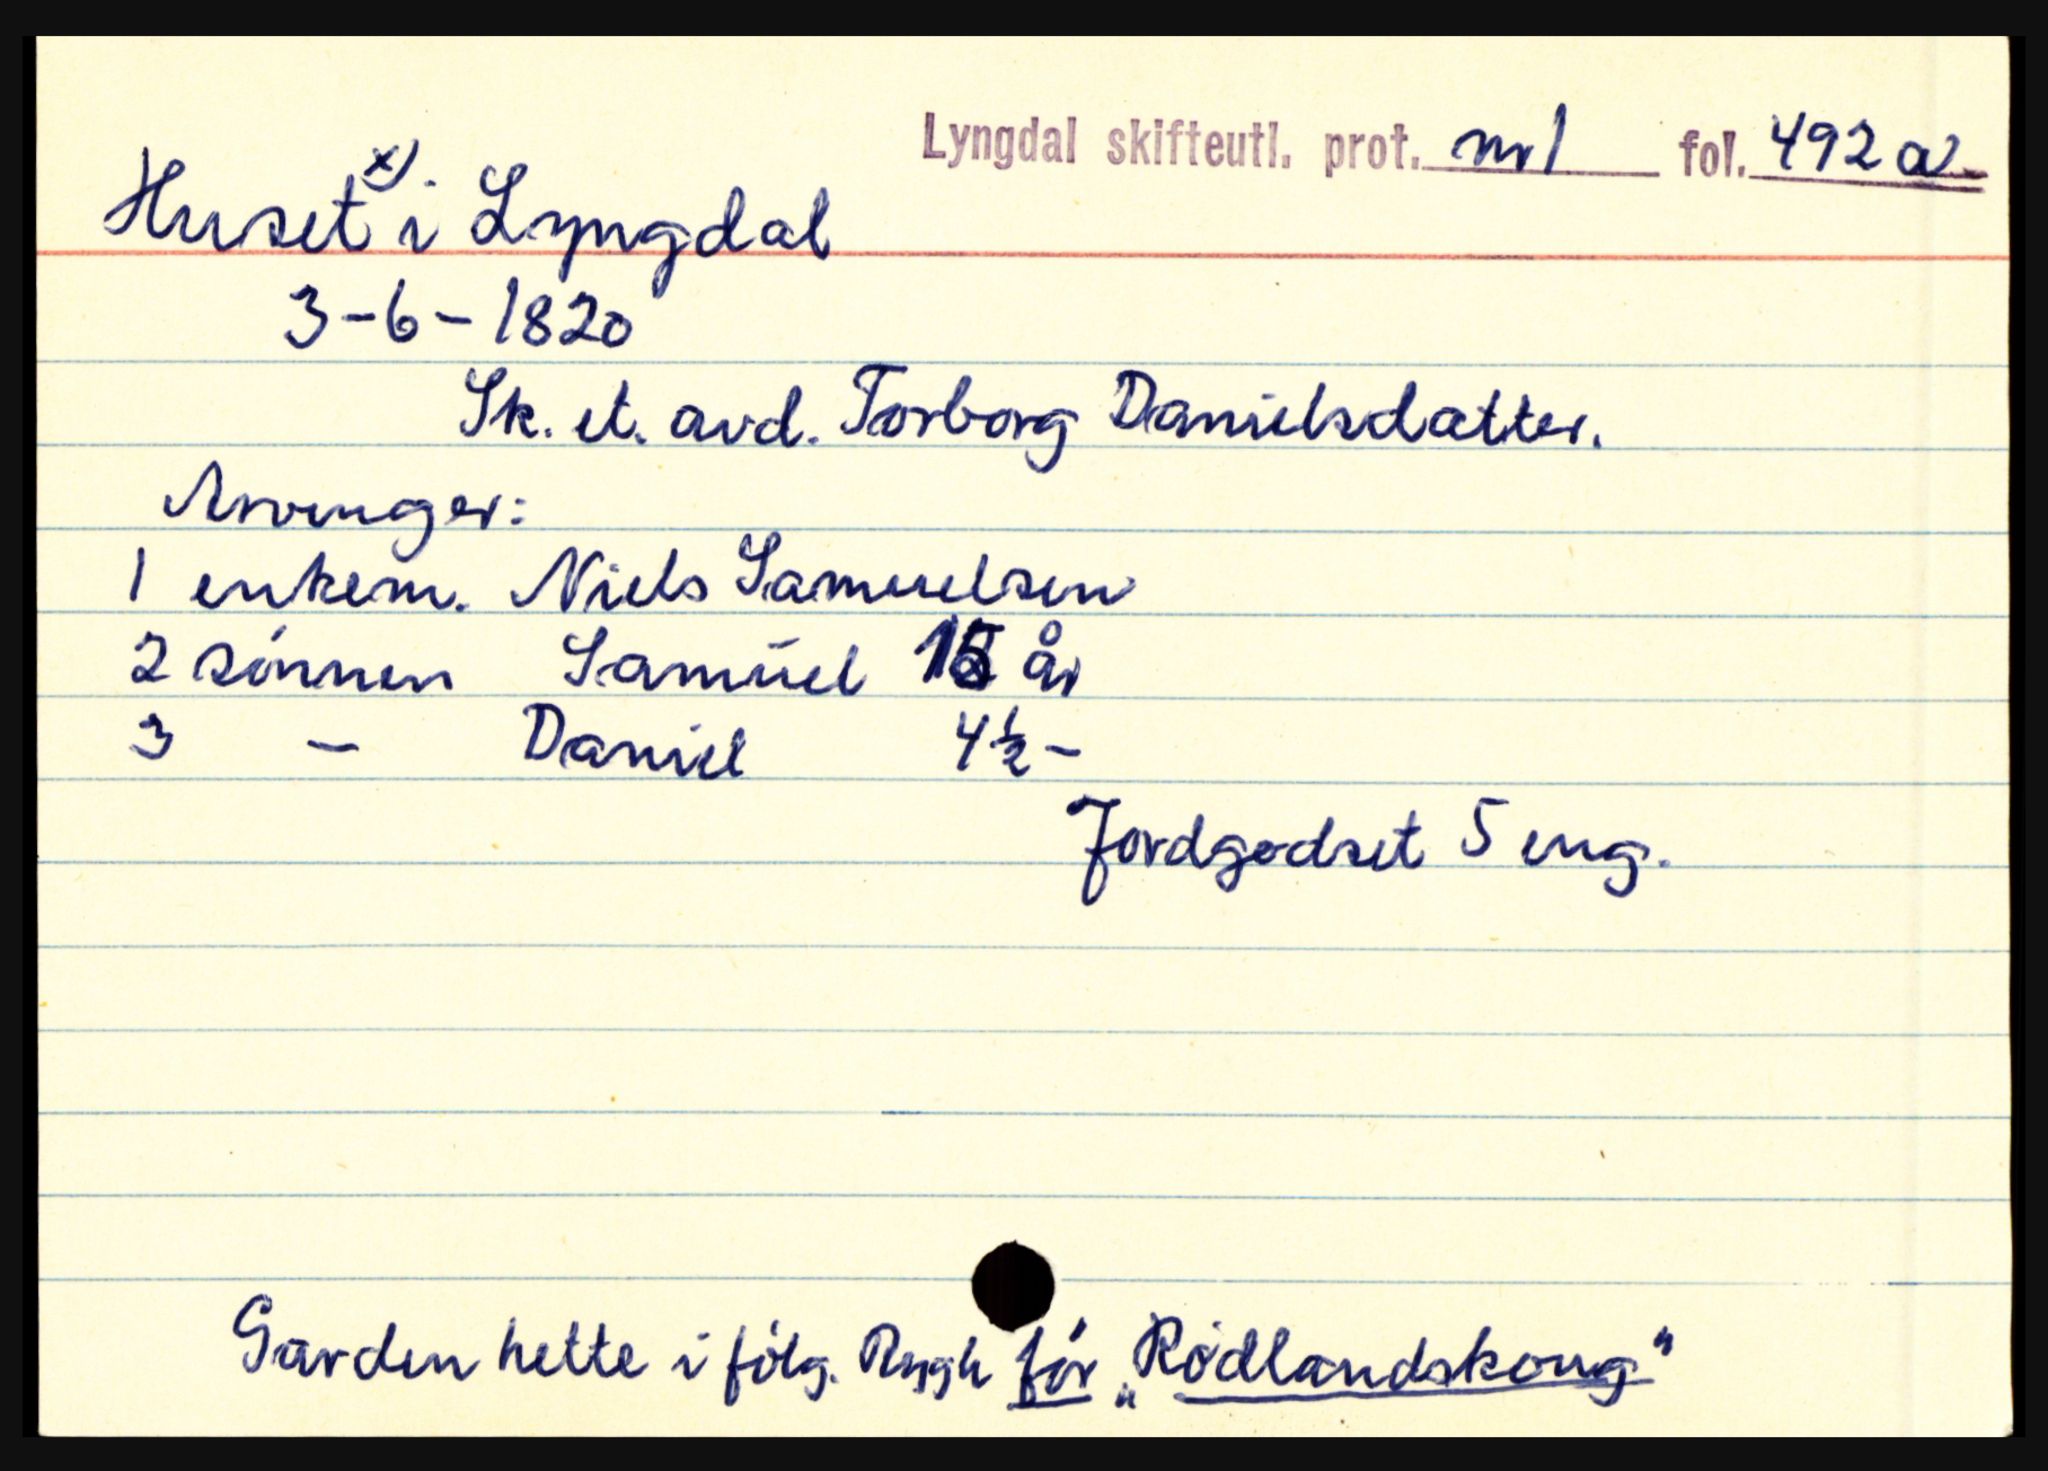 Lyngdal skifteutl. prot. nr 1 fol. 492 a
Huset x) i Lyngdal
3-6-1820
Sk. et. avd. Torborg Danielsdatter.
Arvinger:
1 enkem. Niels Samuelsen
2 sønnen Samuel 15 år
3 - Daniel 4 ½ -
Jordgodset 5 eng.
Garden hette i følg. Rygh før „Rødlandskoug"